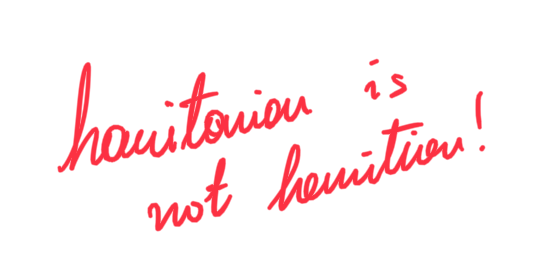 hamitonian is
not hermitian!